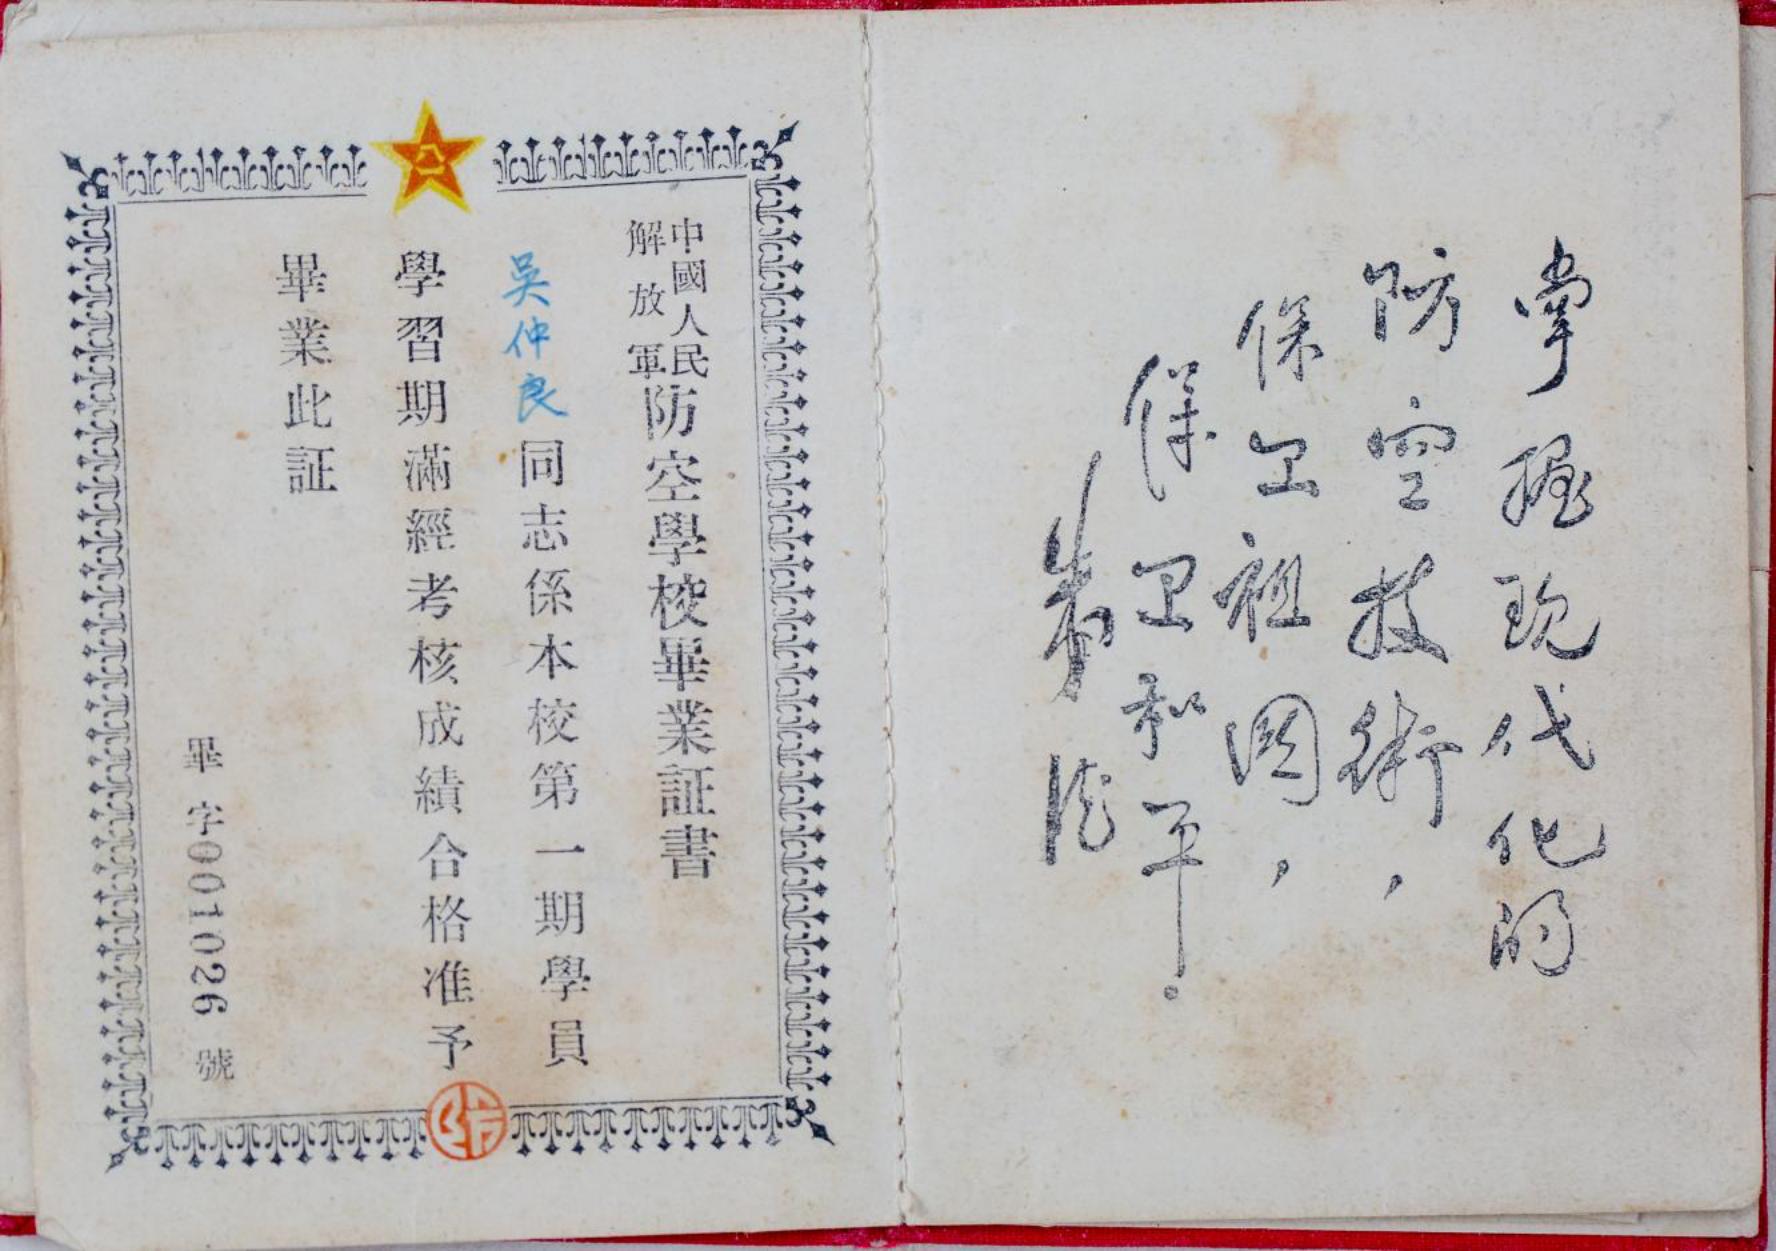 掌握现代化的
防空技術，
保卫祖国，
保卫和平。
朱德
中國人民
解放軍
防空學校畢業証書
吳仲良同志係本校第一期學員
學習期滿經考核成績合格准予
畢業此証
畢字001026號